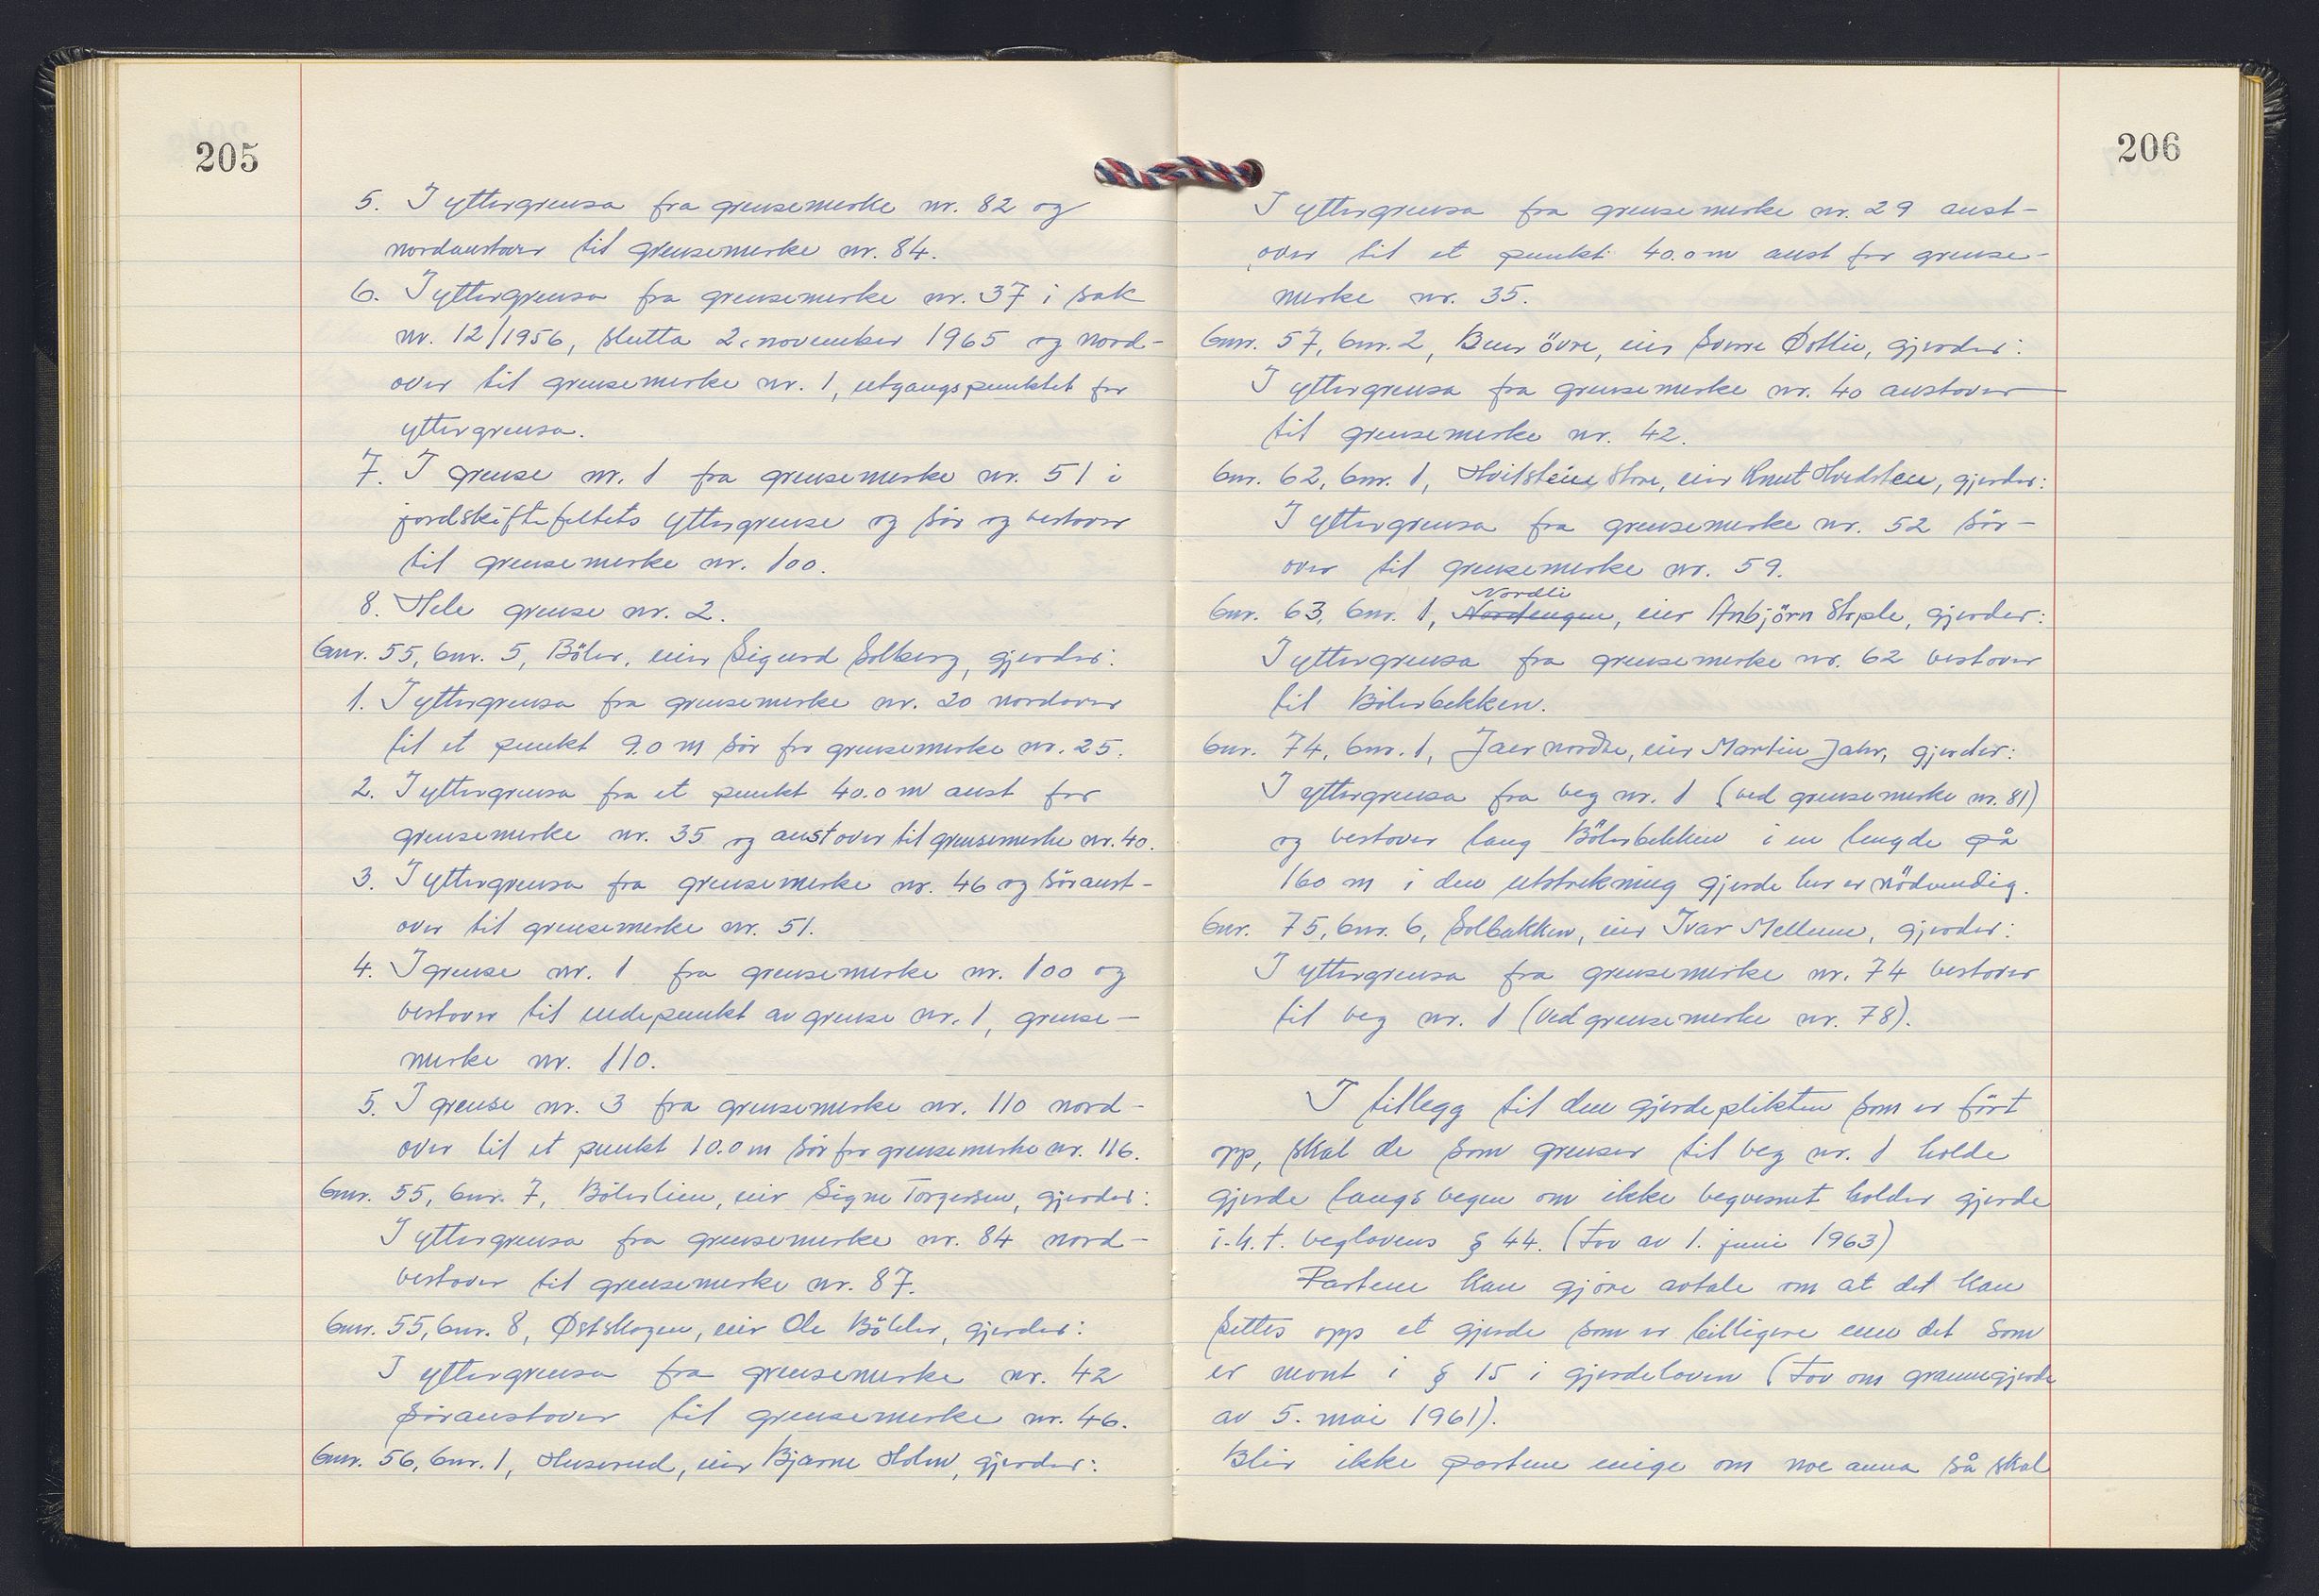 205
5. I yttergrensa fra grensemerke nr. 82 og
nordaustover til grensemerke nr. 84.
6. I yttergrensa fra grensemerke nr. 37 i sak
nr. 12/1956, slutta 2. november 1965 og nord-
over til grensemerke nr. 1, utgangspunktet for
yttergrensa.
7. I grense nr. 1 fra grensemerke nr. 51 i
jordskiftefeltets yttergrense og sør og vestover
til grensemerke nr. 100.
8. Hele grense nr. 2.
Gnr. 55, bnr. 5, Böler, eier Sigurd Solberg, gjerder:
1. I yttergrensa fra grensemerke nr. 20 nordover
til et punkt 9.0 m sör for grensemerke nr. 25.
2. I yttergrensa fra et punkt 40.0 m aust for
grensemerke nr. 35 og austover til grensemerke nr. 40.
3. I yttergrensa fra grensemerke nr. 46 og söraust-
over til grensemerke nr. 51.
4. I grense nr. 1 fra grensemerke nr. 100 og
vestover til endepunkt av grense nr. 1, grense-
merke nr. 110.
5. I grense nr. 3 fra grensemerke nr. 110 nord-
over til et punkt 10.0 m sör for grensemerke nr. 116.
Gnr. 55, bnr. 7, Bölerlien, eier Signe Torgersen, gjerder:
I yttergrensa fra grensemerke nr. 84 nord-
vestover til grensemerke nr. 87.
Gnr. 55, bnr. 8, Østskogen, eier Ole Böhler, gjerder:
I yttergrensa fra grensemerke nr. 42
söraustover til grensemerke nr. 46.
Gnr. 56, bnr. 1, Huserud, eier Bjarne Holm, gjerder:
206
I yttergrensa fra grensemerke nr. 29 aust-
over til et punkt 40.0 m aust for grense-
merke nr. 35.
Gnr. 57, bnr. 2, Buer övre, eier Sverre Østlie, gjerder:
I yttergrensa fra grensemerke nr. 40 austover
til grensemerke nr. 42.
Gnr. 62, bnr. 1, Hvitstein store, eier Knut Hvidsten, gjerder:
I yttergrensa fra grensemerke nr. 52 sör-
over til grensemerke nr. 59.
Nordli
Gnr. 63, bnr. 1, Nordengen, eier Anbjörn Stople, gjerder:
I yttergrensa fra grensemerke nr. 62 vestover
til Bölerbekken.
Gnr. 74, bnr. 1, Jaer nordre, eier Martin Jahr, gjerder:
I yttergrensa fra veg nr. 1 (ved grensemerke nr. 81)
og vestover lang Bölerbekken i en lengde på
160 m i den utstrekning gjerde her er nödvendig.
Gnr. 75, bnr. 6, Solbakken, eier Ivar Mellum, gjerder:
I yttergrensa fra grensemerke nr. 74 vestover
til veg nr. 1 (ved grensemerke nr. 78).
I tillegg til den gjerdeplikten som er fört
opp, skal de som grenser til veg nr. 1 holde
gjerde langs vegen om ikke vegvesnet holder gjerde
i.h.t. veglovens § 44. (Lov av 1. juni 1963)
Partene kan gjöre avtale om at det kan
settes opp et gjerde som er billigere enn det som
er nevnt i § 15 i gjerdeloven (Lov om grannegjerde
av 5. mai 1961).
Blir ikke partene enige om noe anna så skal